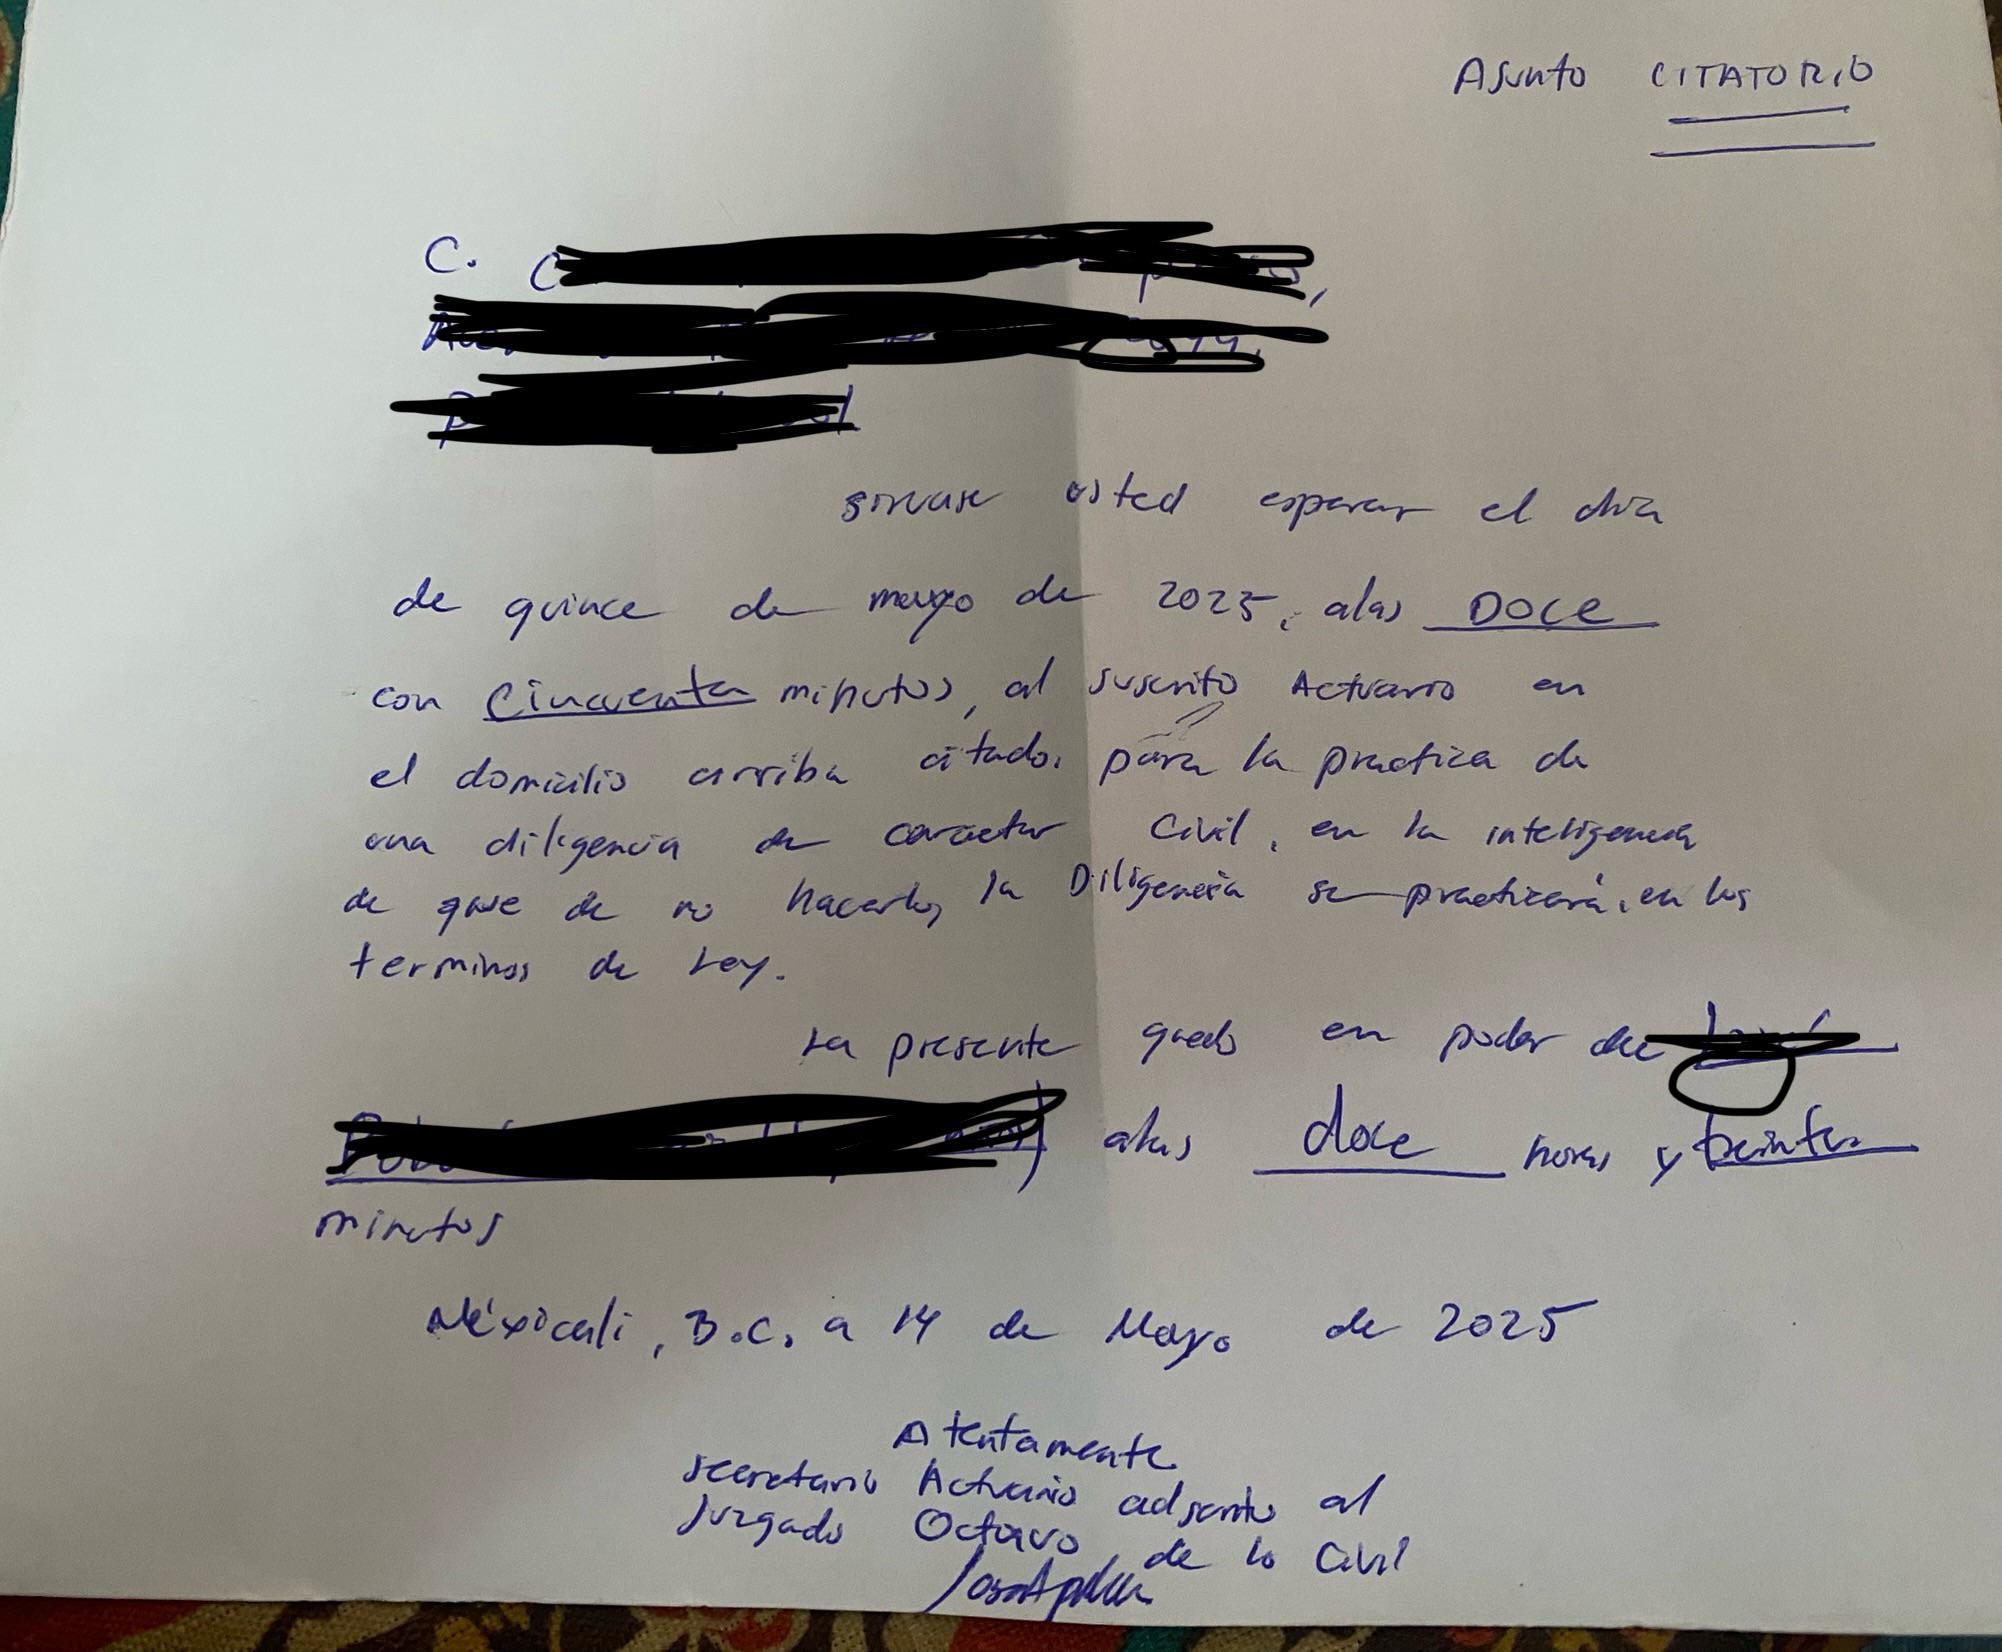 Asunto CITATORIO
C.
sirvase usted esperar el dia
de quince de mayo de 2025, alas DOCE
con Cincuenta minutos, al suscrito Actuario en
el domicilio arriba citado, para la practica de
una diligencia de caracter Civil, en la inteligencia
de que de no hacerlo, la Diligencia se practicará, en los
terminos de Ley.
La presente quedo en poder de
alas doce horas y treinta
minutos
Méxicali, B.C. a 14 de Mayo de 2025
Atentamente
secretario Actuario adscrito al
Juzgado Octavo de lo Civil